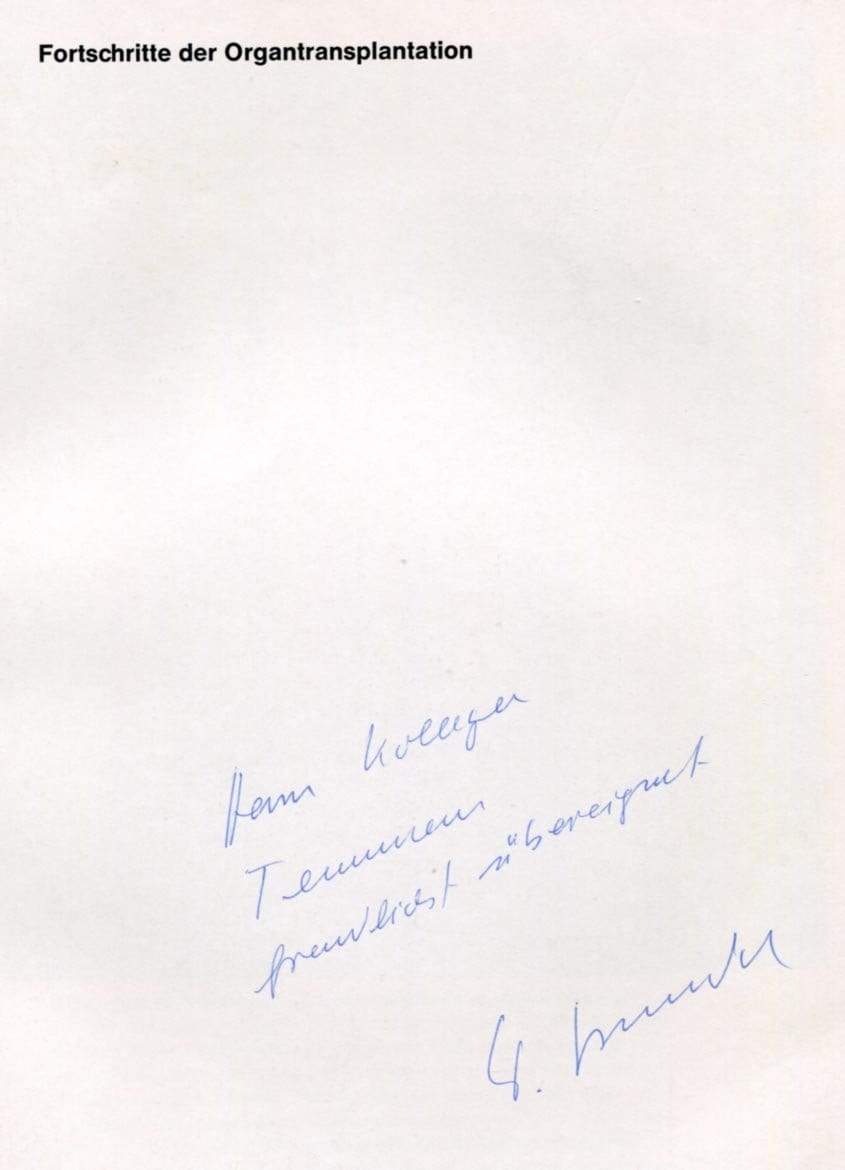 Fortschritte der Organtransplantation
Herrn Kollegen
freundlichst übereignet